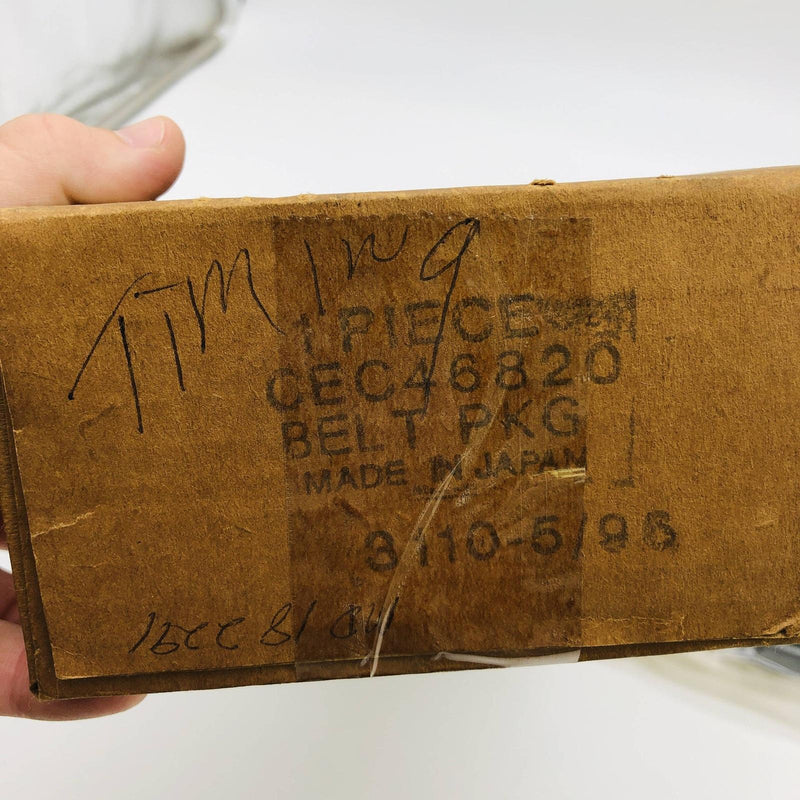 Timing
1 PIECE
CEC46820
BELT PKG
MADE IN JAPAN
3110-5/96